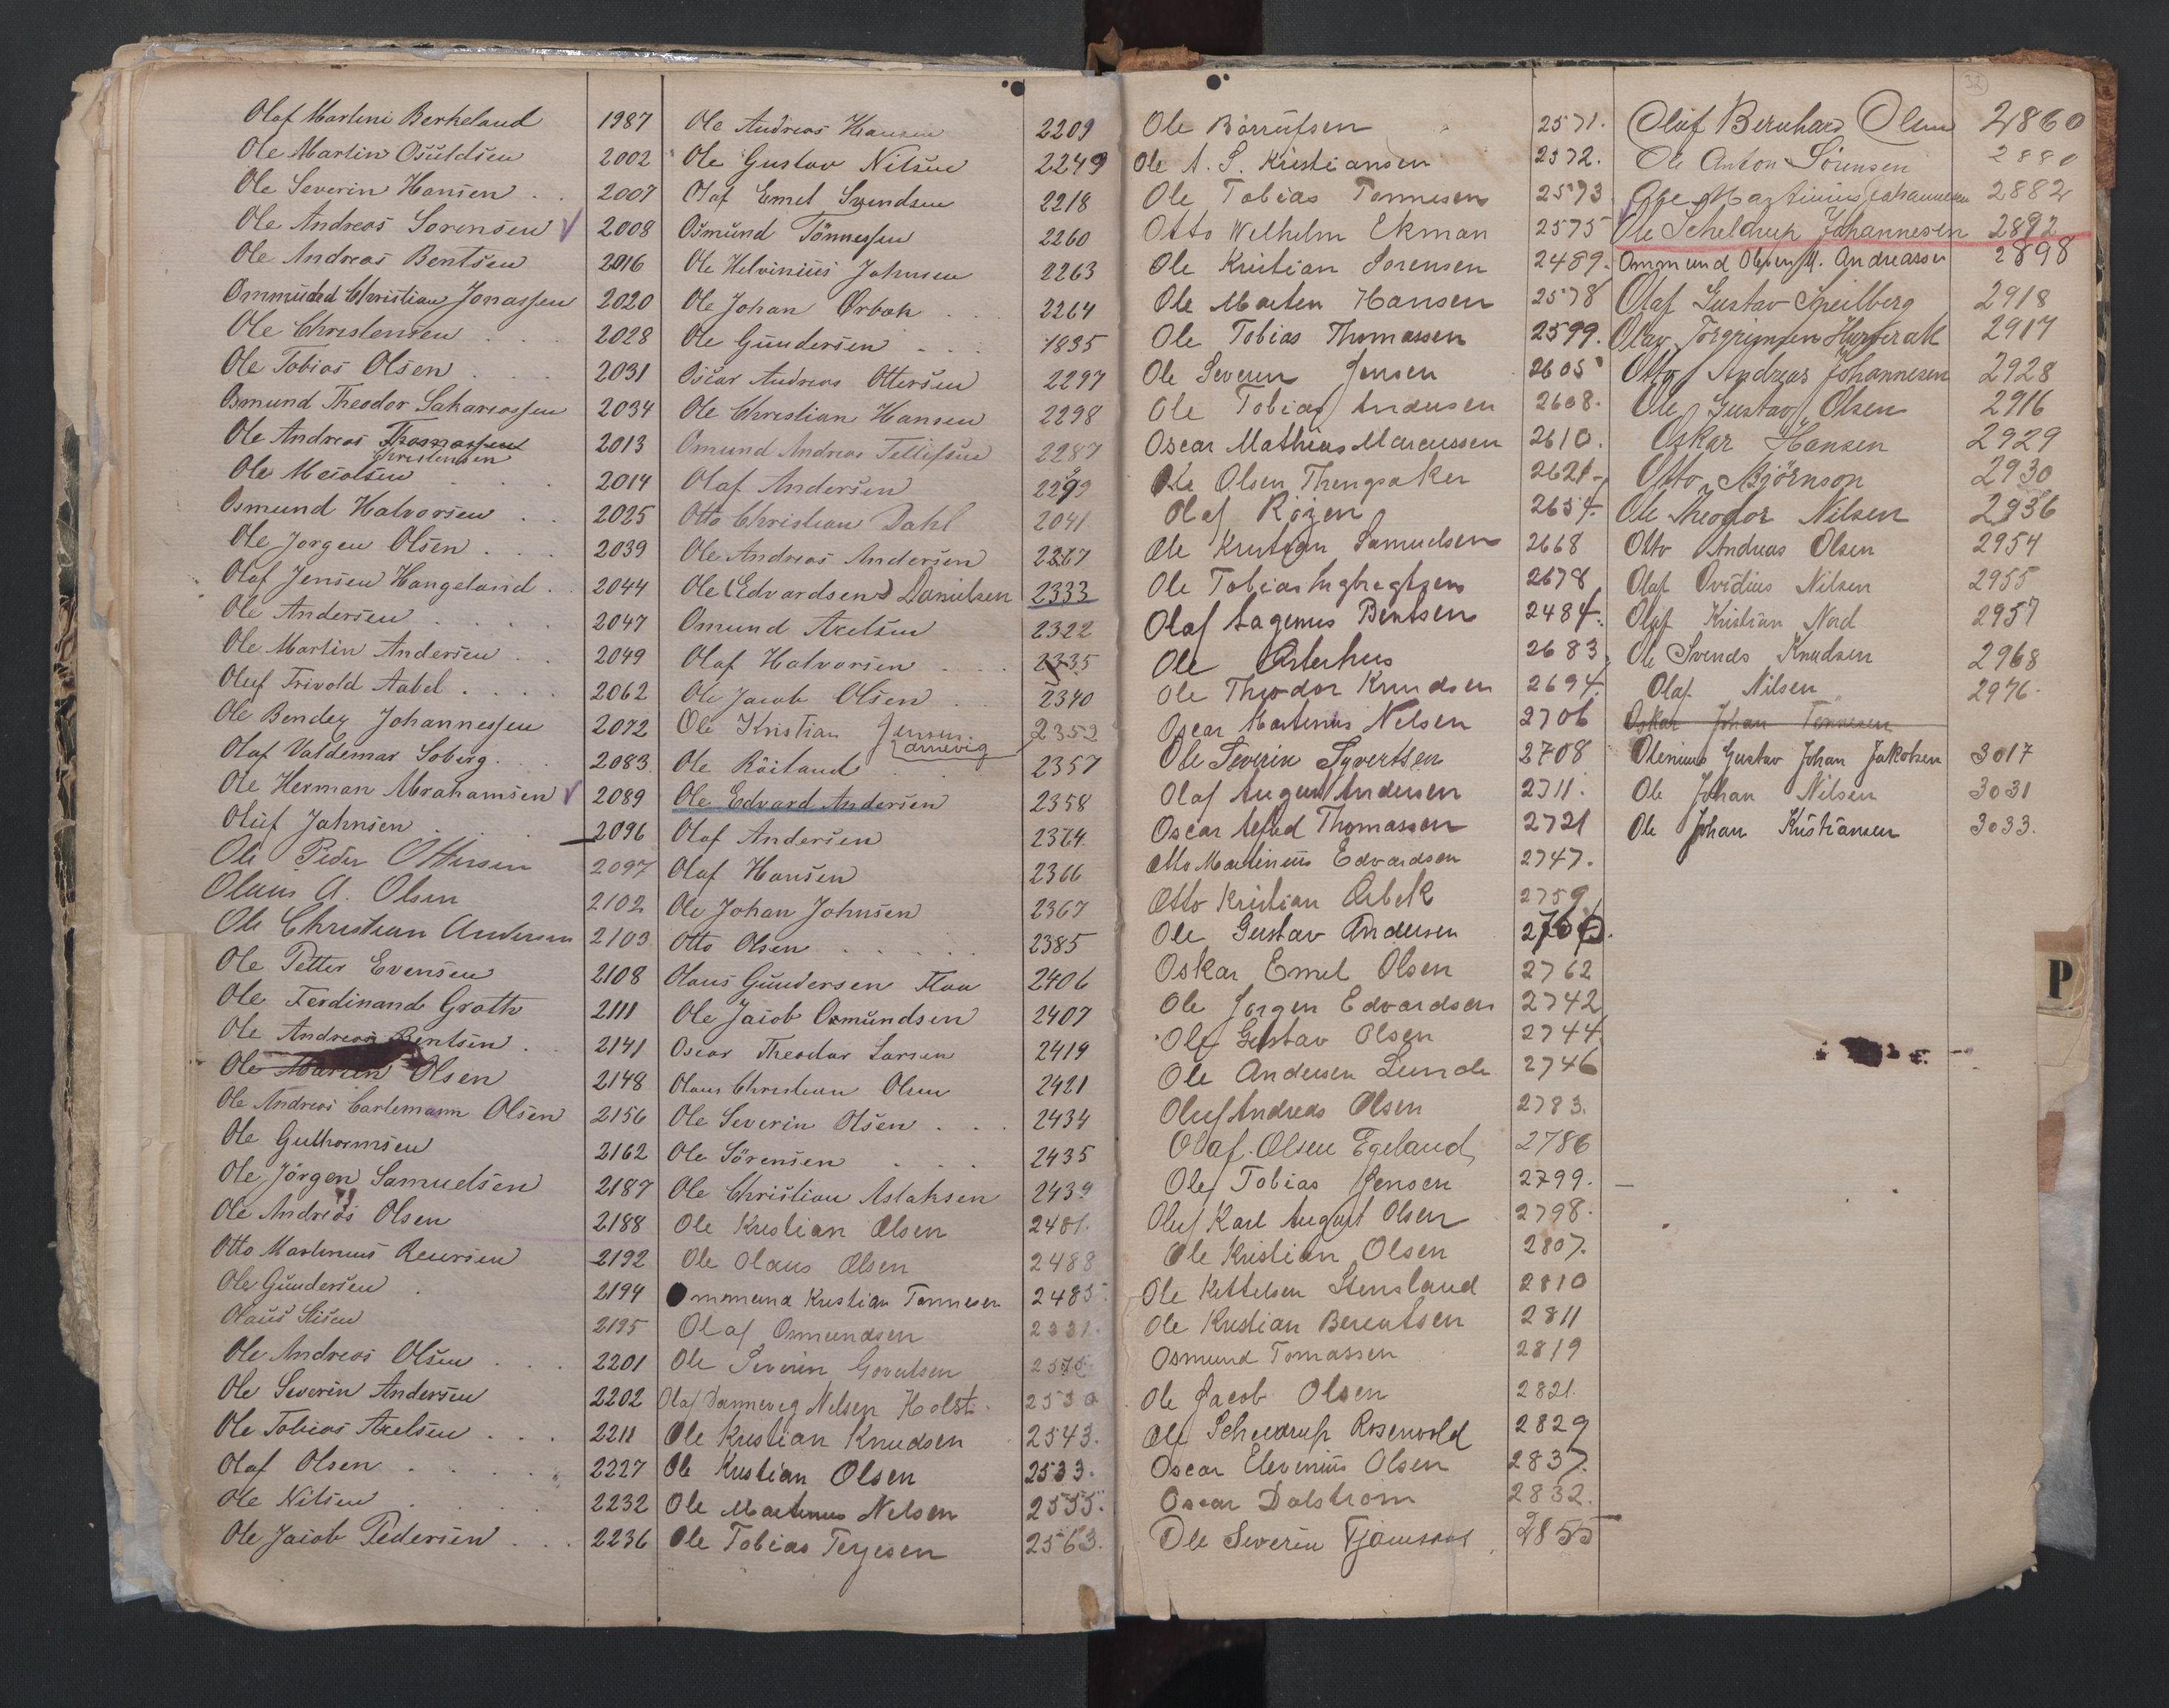 Olaf Martini Berkeland 1987
Ole Martin Osuldsen 2002
Ole Severin Hansen . . 2007
Ole Andreas Sorensen 2008
Ole Andreas Bentsen 2016
Ommund Christian Jonassen 2020
Ole Christensen . . . 2028
Ole Tobias Olsen . . . 2031
Osmund Theodor Sakariassen 2034
Ole Andreas Thomassen 2013
Christensen
Ole . . . 2014
Osmund Halvorsen . . 2025
Ole Jorgen Olsen . . . 2039
Olaf Jensen Hangeland . 2044
Ole Andersen . . . . 2047
Ole Martin Andersen . . 2049
Oluf Trivold Aabel . . . . 2062
Ole Bendix Johannessen 2072
Olaf Valdemar Soberg . . . 2083
Ole Herman Abrahamsen 2089
Oluf Jahnsen . . . 2096
Ole Peder Ottersen 2097
Olaus A. Olsen 2102
Ole Christian Andersen 2103
Ole Petter Evensen 2108
Ole Ferdinand Groth 2111
Ole Andreas Bentsen . 2141
Ole Martin Olsen 2148
Ole Andreas Carlemann Olsen 2156
Ole Guthormsen 2162
Ole Jörgen Samuelsen 2187
Ole Andreas Olsen 2188
Otto Martinius Reiersen 2192
Ole Gundersen . 2194
Olaus 2195
Ole Andreas Olsen . . . 2201
Ole Severin Andersen 2202
Ole Tobias Axelsen . . . 2211
Olaf Olsen . . . . 2227
Ole Nilsen . . . . 2232
Ole Jacob Pedersen . . . 2236
Ole Andreas Hansen 2209
Ole Gustav Nilsen 2249
Olaf Emil Svendsen 2218
Osmund Tönnessen 2260
Ole Helvinius Johnsen 2263
Ole Johan Orbæk . . . 2264
Ole Gundersen . . . 1835
Oscar Andreas Ottersen 2297
Ole Christian Hansen 2298
Omund Andreas Tellefsen 2287
Olaf Andersen 2299
Otto Christian Dahl 2041
Ole Andreas Andersen 2267
Ole (Edvardsen) Danielsen 2333
Omund Axelsen 2322
Olaf Halvorsen . . . . 2335
Ole Jacob Olsen . . 2340
Ole Kristian Jensen 2353
Arnevig
Ole Röiland . . 2357
Ole Edvard Andersen 2358
Olaf Andersen 2364
Olaf Hansen 2366
Ole Johan Johnsen 2367
Otto Olsen . . . . . 2385
Olaus Gundersen Flaa 2406
Ole Jacob Osmundsen 2407
Oscar Theodor Larsen 2419
Olaus Christian Olsen 2421
Ole Severin Olsen . . . 2434
Ole Sörensen . . . 2435
Ole Christian Aslaksen 2439
Ole Kristian Olsen 2481.
Ole Olaus Olsen 2488
Ommund Kristian Tønnesen 2485
Olaf Osmundsen
Ole Severin
Olaf Dannevig Nilsen Holst. 2530
Ole Kristian Knudsen 2543.
Ole Kristian Olsen 2533.
Ole Martinus Nilsen 2555.
Ole Tobias Terjesen 2563.
32
Ole Börrufsen 2571.
Ole A. S. Kristiansen 2572.
Ole Tobias Tønnesen 2573
Otto Wilhelm Ekman 2575
Ole Kristian Sorensen 2489.
Ole Martin Hansen 2578
Ole Tobias Thomassen 2599.
Ole Severin Jensen 2605
Ole Tobias Andersen 2608.
Oscar Mathias Marcussen 2610.
Ole Olsen Thengsaker 2621
Olaf Rözen 2654.
Ole Kristian Samuelsen 2668
Ole Tobias Ingbregtsen 2678
Olaf Aagenus Bentsen 2484.
Ole Østerhus 2683
Ole Theodor Knudsen 2694.
Oscar Martinus Nilsen 2706
Ole Severin Syvertsen 2708
Olaf August Andersen 2711.
Oscar Alfred Thomassen 2721
Otto Martinius Edvardsen 2747.
Otto Kristian Ørbek 2759
Ole Gustav Andersen 2760.
Oskar Emil Olsen 2762
Ole Jørgen Edvardsen 2742
Ole Gustav Olsen 2744
Ole Andersen Lunde 2746
Oluf Andreas Olsen 2783.
Olaf Olsen Egeland 2786
Ole Tobias Jensen 2799.
Oluf Karl August Olsen 2798.
Ole Kristian Olsen 2807.
Ole Kettelsen Stensland 2810
Ole Kristian Berentsen 2811
Osmund Tomassen 2819
Ole Jacob Olsen 2821.
Ole Scheldrup Rosenvold 2829
Oscar Elevinius Olsen 2837.
Oscar Dalstrom 2832.
Ole Severin 2855
Olaf Bernhard Olsen 2860
Ole Anton Sörensen 2880
Ole Martinius Johannesen 2882
Ole Scheldrup Johannesen 2892
Ommund Olsen M. Andreassen 2898
Olaf Gustav Speilberg 2918
Olav Torgrimsen 2917
Otto Andreas Johannesen 2928
Ole Gustav Olsen 2916
Oskar Hansen 2929
Otto Björnson 2930
Ole Theodor Nilsen 2936
Otto Andreas Olsen 2954
Olaf Ovidius Nilsen 2955
Olaf Kristian Nord 2957
Ole Svends Knudsen 2968
Olaf Nilsen 2976.
Oskar Johan Tønnesen
Olenius Gustav Johan Jakobsen 3017
Ole Johan Nilsen 3031
Ole Johan Kristiansen 3033.
P